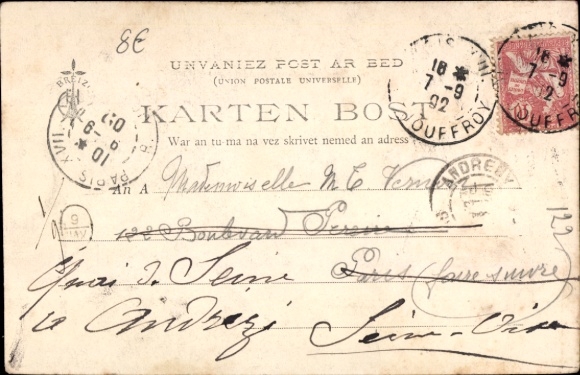 8E
UNVANIEZ POST AR BED
(UNION POSTALE UNIVERSELLE)
BREIZ
KARTEN BOST
War an tu-ma na vez skrivet nemed an adress
18 *
7 - 9
02
JOUFFROY
18 *
7 - 9
JOUFFROY
PARIS XVII
10 *
6 - 9
02
ANDRESY
An A Mademoiselle M. C.
122 Boulevard Pereire
Paris (faire suivre
122
Quai de Seine
à Andrezi
Seine-Oise